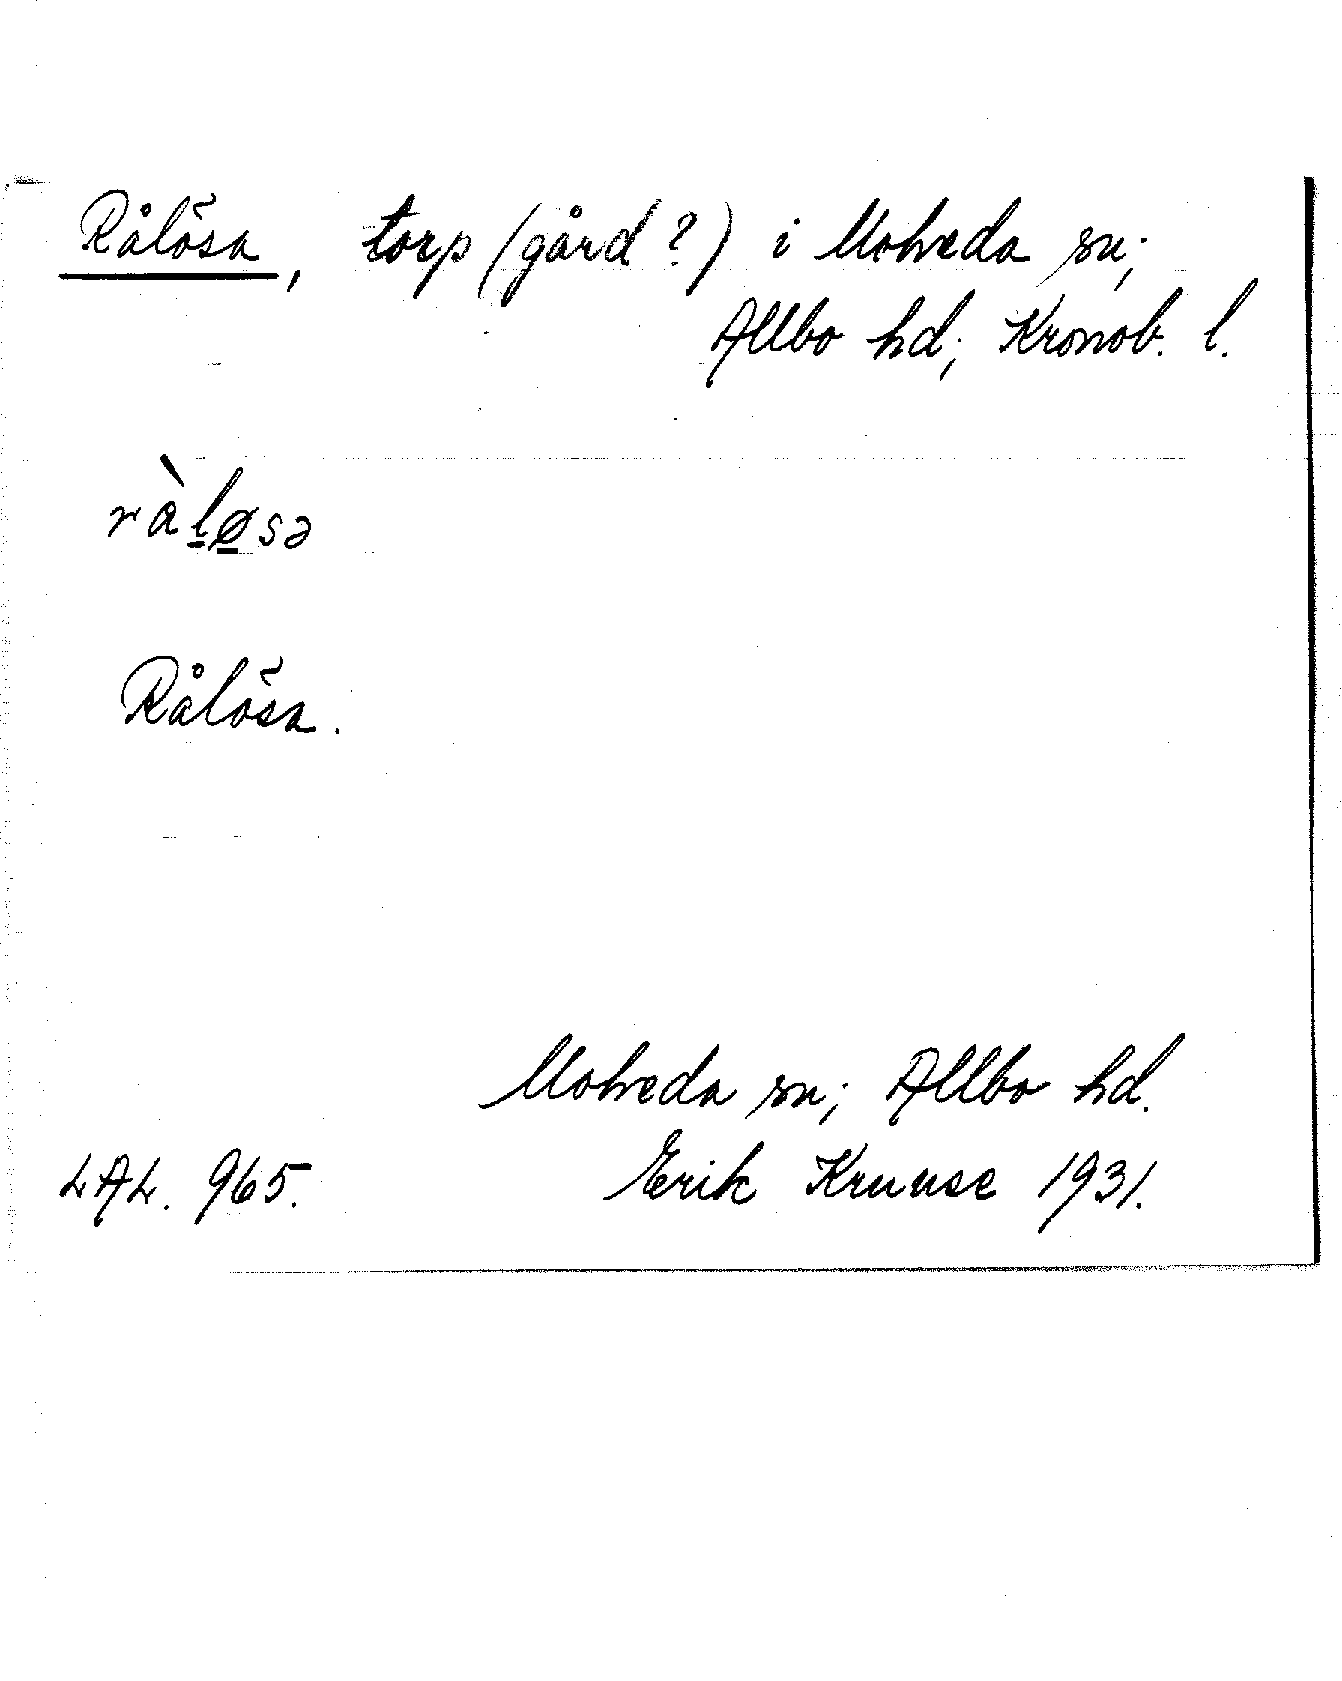 Rålösa, torp (gård?) i Moheda sn;
Allbo hd; Kronob. l.
ràløsə
Rålösa.
Moheda sn; Allbo hd.
LAL. 965. Erik Kruuse 1931.